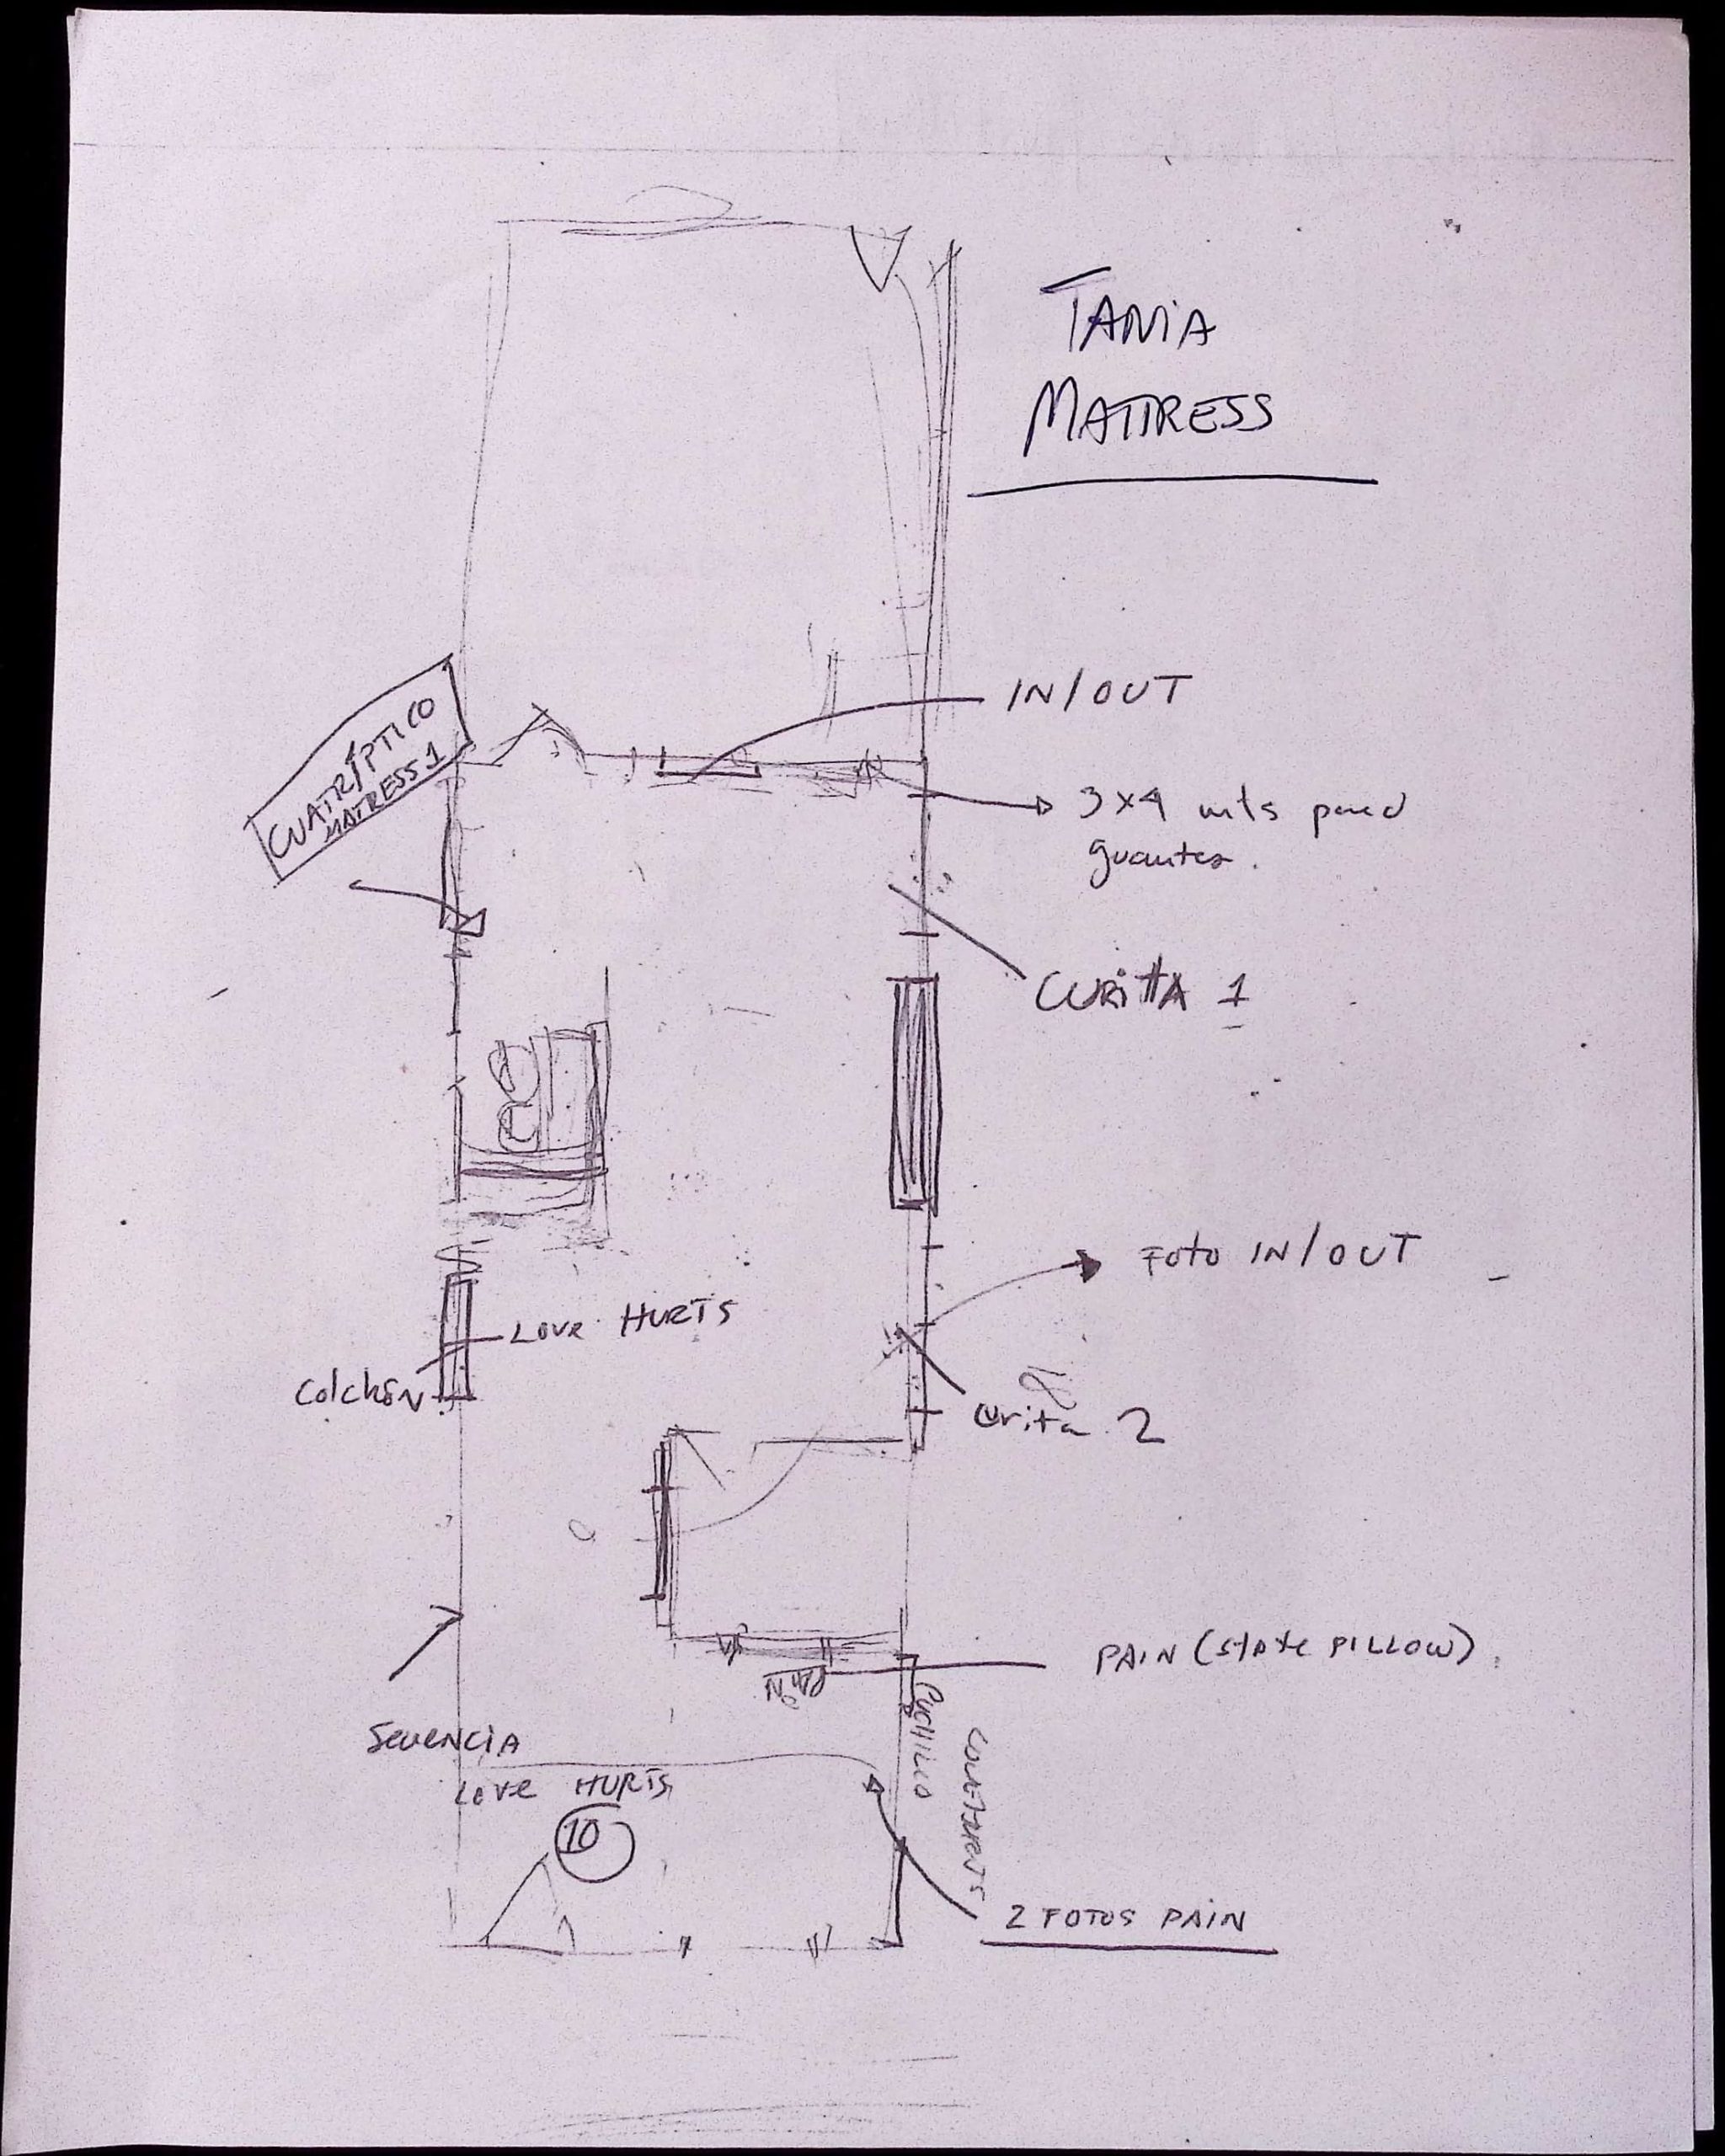 TANIA
MATTRESS
CUATRÍPTICO
MATRESS 1
IN/OUT
3x4 mts pared
guantes.
CURITA 1
Foto IN/OUT
LOVE HURTS
Colchón
Curita 2
PAIN (state PILLOW)
PAIN
CUCHILLO
SECUENCIA
LOVE HURTS
10
2 FOTOS PAIN